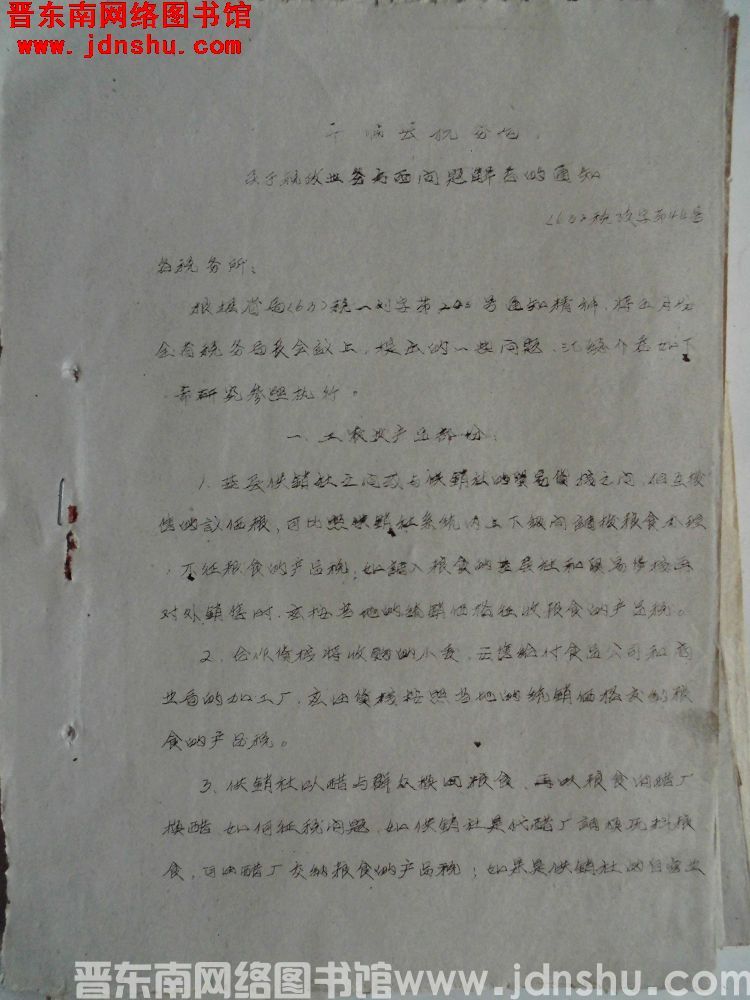 晋东南网络图书馆
www.jdnshu.com
关于税政业务方面问题解答的通知
(63)税政字第44号
各税务所:
根据省局(63)税一刘字第号通知精神,将五月份
全省税务局长会议上,提出的一些问题,汇综介意如下
希研究参照执行。
一、工农业产品部份:
1、基层供销社之间或与供销社的贸易货栈之间,但互换
售的议价粮,可比照供销社系统内上下级间调拨粮食办理
,不征粮食的产品税,如购入粮食的基层社和贸易货栈再
对外销售时,应按当地的统销价格征收粮食的产品税。
2、合作货栈将收购的小麦,去售给付食品公司和商
业局的加工厂,应由货栈按照当地的统销价格交纳粮
食的产品税。
3、供销社以醋与群众换回粮食,再以粮食向醋厂
换醋,如何征税问题,如供销社是代醋厂调换元料粮
食,可由醋厂交纳粮食的产品税;如果是供销社的自营业
晋东南网络图书馆www.jdnshu.com